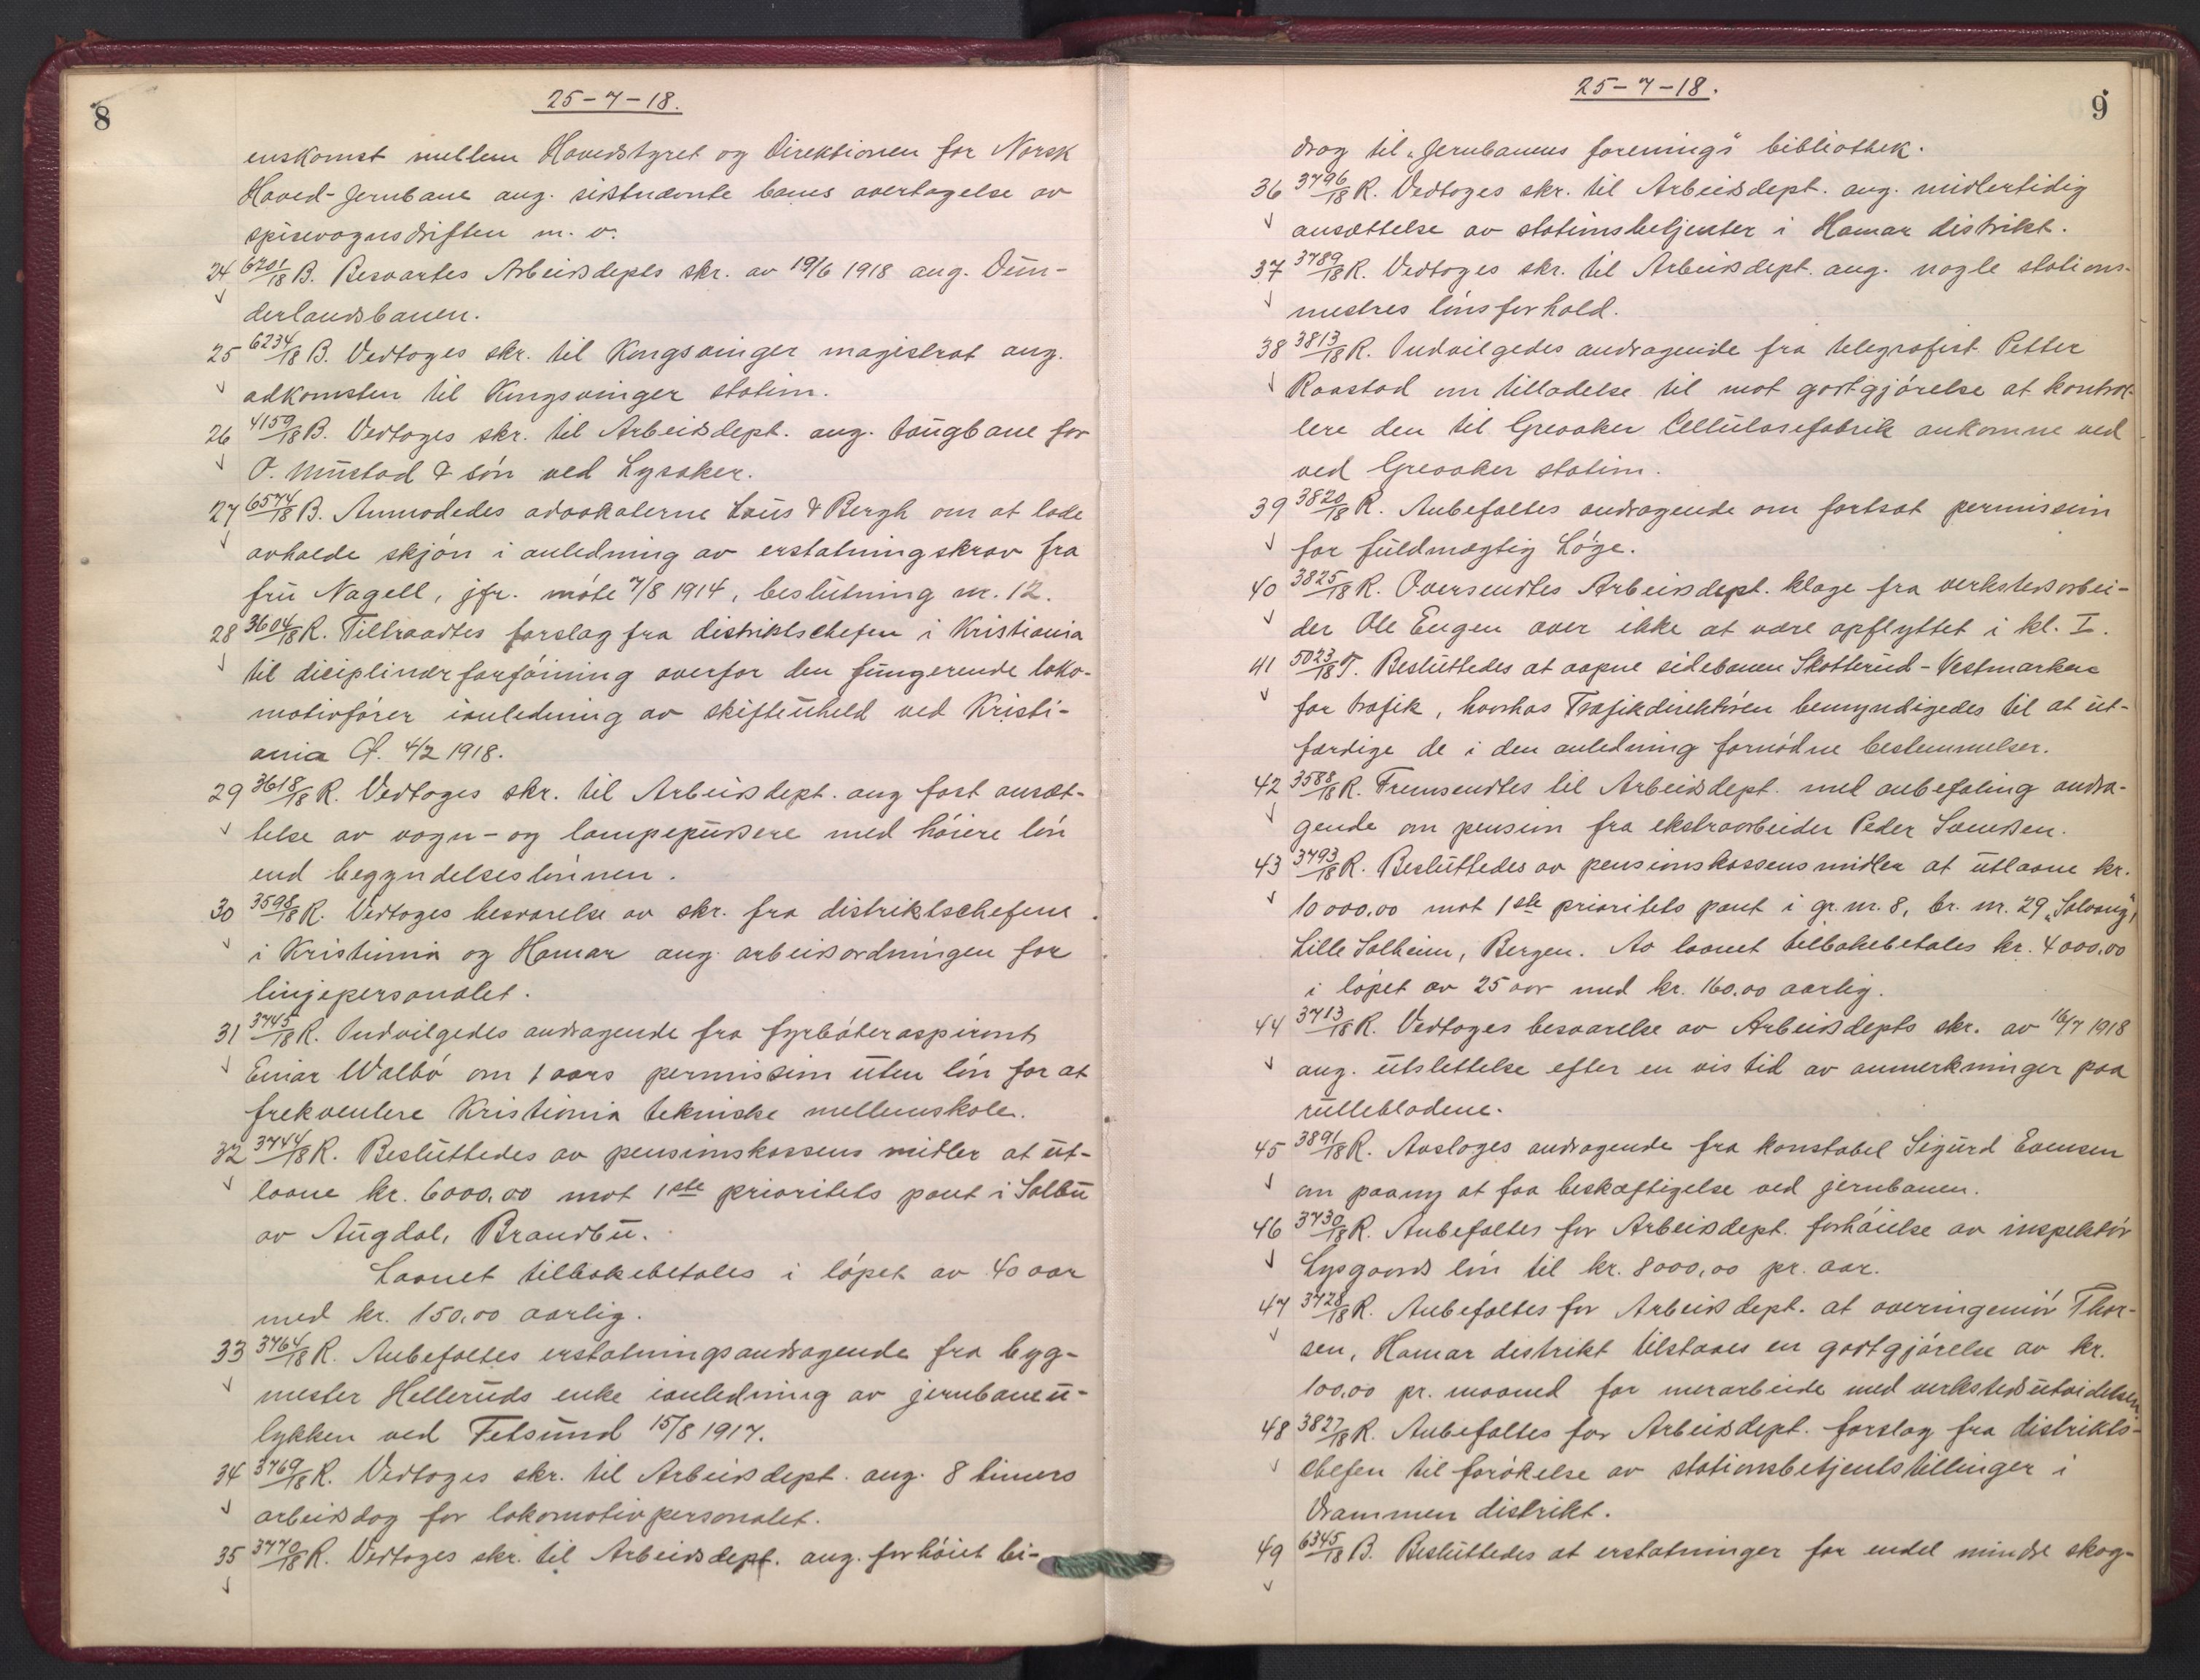 8
25-7-18.
enskomst mellem Hovedstyret og Direktionen for Norsk
Hoved-Jernbane ang. sistnævnte banes overtagelse av
spisevognsdriften m. v.
24 6201/18 B. Besvartes Arbeidsdepts skr. av 19/6 1918 ang. Dun-
derlandsbanen.
25 6234/18 B. Vedtoges skr. til Kongsvinger magistrat ang.
adkomsten til Kongsvinger station.
26 4159/18 B. Vedtoges skr. til Arbeidsdept. ang. taugbane for
O. Mustad & søn ved Lysaker.
27 6574/18 B. Anmodedes advokaterne Lous & Bergh om at lade
avholde skjøn i anledning av erstatningskrav fra
fru Nagell, jfr. møte 7/8 1914, beslutning nr. 12.
28 3604/18 R. Tiltraadtes forslag fra distriktschefen i Kristiania
til diciplinær forføining overfor den fungerende loko-
motivfører ianledning av skifteuheld ved Kristi-
ania Ø. 4/2 1918.
29 3618/18 R. Vedtoges skr. til Arbeidsdept. ang fast ansæt-
telse av vogn- og lampepudsere med høiere løn
end begyndelseslønnen.
30 3598/18 R. Vedtoges besvarelse av skr. fra distriktschefene
i Kristiania og Hamar ang. arbeidsordningen for
linjepersonalet.
31 3745/18 R. Indvilgedes andragende fra fyrbøteraspirant
Einar Walbø om 1 aars permission uten løn for at
frekventere Kristiania tekniske mellemskole.
32 3744/18 R. Besluttedes av pensionskassens midler at ut-
laane kr. 6000,00 mot 1ste prioritets pant i Solbu
av Augdal, Brandbu.
Laanet tilbakebetales i løpet av 40 aar
med kr. 150,00 aarlig.
33 3764/18 R. Anbefaltes erstatningsandragende fra byg-
mester Helleruds enke ianledning av jernbaneu-
lykken ved Fetsund 15/8 1917.
34 3769/18 R. Vedtoges skr. til Arbeidsdept. ang. 8 timers
arbeidsdag for lokomotivpersonalet.
35 3770/18 R. Vedtoges skr. til Arbeidsdept. ang. forhøiet bi-
9
25-7-18.
drag til "Jernbanens forenings" bibliothek.
36 3796/18 R. Vedtoges skr. til Arbeidsdept. ang. midlertidig
ansættelse av stationsbetjenter i Hamar distrikt.
37 3789/18 R. Vedtoges skr. til Arbeidsdept. ang. nogle stations-
mestres lønsforhold.
38 3813/18 R. Indvilgedes andragende fra telegrafist Petter
Raastad om tilladelse til mot godtgjørelse at kontrol-
lere den til Greaaker Cellulosefabrik ankomne ved
ved Greaaker station.
39 3820/18 R. Anbefaltes andragende om fortsat permission
for fuldmægtig Løge.
40 3825/18 R. Oversendtes Arbeidsdept. klage fra verkstedsarbei-
der Ole Engen over ikke at være opflyttet i kl. I.
41 5023/18 T. Besluttedes at aapne sidebanen Skotterud-Vestmarken
for trafik, hvorhos Trafikdirektøren bemyndigedes til at ut-
færdige de i den anledning fornødne bestemmelser.
42 3588/18 R. Fremsendtes til Arbeidsdept. med anbefaling andra-
gende om pension fra ekstraarbeider Peder
43 3793/18 R. Besluttedes av pensionskassens midler at utlaane kr.
10 000,00 mot 1ste prioritets pant i gr. nr. 8, br. nr. 29 "Solvang",
Lille Solheim, Bergen. Av laanet tilbakebetales kr. 4 000,00
i løpet av 25 aar med kr. 160,00 aarlig.
44 3713/18 R. Vedtoges besvarelse av Arbeidsdepts skr. av 16/7 1918
ang. utslettelse efter en vis tid av anmerkninger paa
rullebladene.
45 3891/18 R. Avsloges andragende fra konstabel Sigurd Evensen
om paany at faa beskæftigelse ved jernbanen.
46 3730/18 R. Anbefaltes for Arbeidsdept. forhøielse av inspektør
Lysgaards løn til kr. 8000,00 pr. aar.
47 3728/18 R. Anbefaltes for Arbeidsdept. at overingeniør Thor-
sen, Hamar distrikt tilstaaes en godtgjørelse av kr.
100,00 pr. maaned for merarbeide med verkstedsutvidelsen.
48 3827/18 R. Anbefaltes for Arbeidsdept. forslag fra distrikts-
chefen til forøkelse av stationsbetjentstillinger i
Drammen distrikt.
49 6345/18 B. Besluttedes at erstatninger for endel mindre skog-